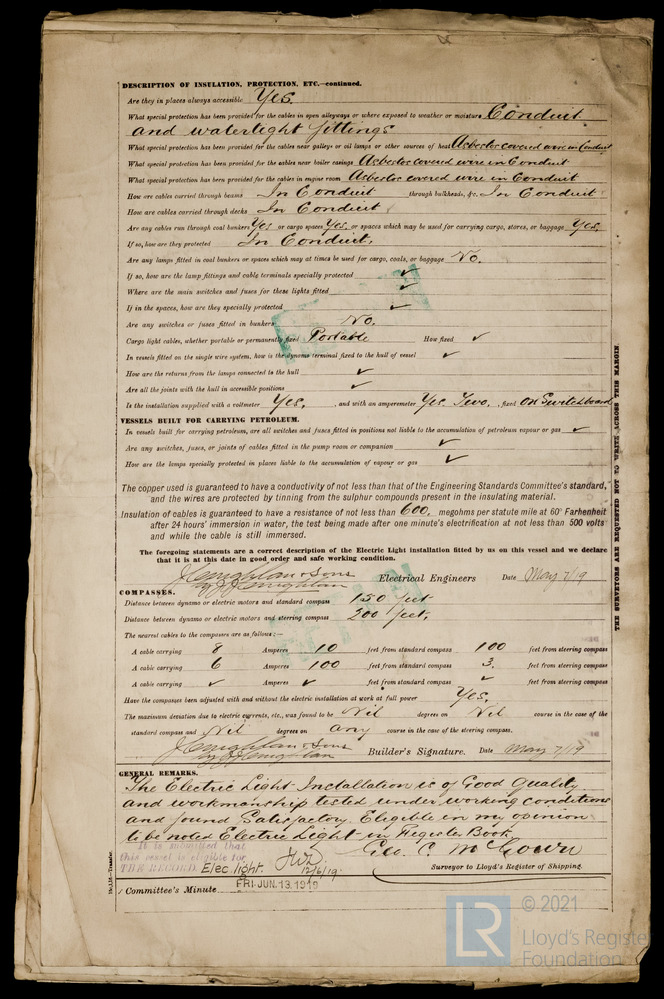 DESCRIPTION OF INSULATION, PROTECTION, ETC.—continued.
Are they in places always accessible Yes.
What special protection has been provided for the cables in open alleyways or where exposed to weather or moisture Conduit
and watertight fittings
What special protection has been provided for the cables near galleys or oil lamps or other sources of heat Asbestos covered wire in Conduit
What special protection has been provided for the cables near boiler casings Asbestos covered wire in Conduit
What special protection has been provided for the cables in engine room Asbestos covered wire in Conduit
How are cables carried through beams In Conduit through bulkheads, &c. In Conduit
How are cables carried through decks In Conduit
Are any cables run through coal bunkers Yes or cargo spaces Yes. or spaces which may be used for carrying cargo, stores, or baggage Yes.
If so, how are they protected In Conduit.
Are any lamps fitted in coal bunkers or spaces which may at times be used for cargo, coals, or baggage No.
If so, how are the lamp fittings and cable terminals specially protected ✓
Where are the main switches and fuses for these lights fitted ✓
If in the spaces, how are they specially protected ✓
Are any switches or fuses fitted in bunkers No.
Cargo light cables, whether portable or permanently fixed Portable How fixed ✓
In vessels fitted on the single wire system, how is the dynamo terminal fixed to the hull of vessel ✓
How are the returns from the lamps connected to the hull ✓
Are all the joints with the hull in accessible positions ✓
Is the installation supplied with a voltmeter Yes, and with an amperemeter Yes. Two. , fixed On Switchboard
VESSELS BUILT FOR CARRYING PETROLEUM.
In vessels built for carrying petroleum, are all switches and fuses fitted in positions not liable to the accumulation of petroleum vapour or gas ✓
Are any switches, fuses, or joints of cables fitted in the pump room or companion ✓
How are the lamps specially protected in places liable to the accumulation of vapour or gas ✓
The copper used is guaranteed to have a conductivity of not less than that of the Engineering Standards Committee's standard,
and the wires are protected by tinning from the sulphur compounds present in the insulating material.
Insulation of cables is guaranteed to have a resistance of not less than 600. megohms per statute mile at 60° Farhenheit
after 24 hours' immersion in water, the test being made after one minute's electrification at not less than 500 volts
and while the cable is still immersed.
The foregoing statements are a correct description of the Electric Light installation fitted by us on this vessel and we declare
that it is at this date in good order and safe working condition.
Electrical Engineers Date May 7/19
COMPASSES.
Distance between dynamo or electric motors and standard compass 150 feet
Distance between dynamo or electric motors and steering compass 200 feet.
The nearest cables to the compasses are as follows:—
A cable carrying 8 Amperes 10 feet from standard compass 100 feet from steering compass
A cable carrying 6 Amperes 100 feet from standard compass 3. feet from steering compass
A cable carrying ✓ Amperes ✓ feet from standard compass ✓ feet from steering compass
Have the compasses been adjusted with and without the electric installation at work at full power Yes.
The maximum deviation due to electric currents, etc., was found to be Nil degrees on Nil course in the case of the
standard compass and Nil degrees on any course in the case of the steering compass.
Builder's Signature. Date May 7/19
GENERAL REMARKS.
The Electric Light Installation is of Good Quality
and workmanship tested under working conditions
and found Satisfactory. Eligible in my opinion
to be noted Electric Light in Register Book.
It is submitted that
this vessel is eligible for
THE RECORD. Elec light. 12/6/19.
Geo. C. McGown
Surveyor to Lloyd's Register of Shipping.
Committee's Minute FRI. JUN. 13. 1919
THE SURVEYORS ARE REQUESTED NOT TO WRITE ACROSS THIS MARGIN.
LR
© 2021
Lloyd's Register
Foundation